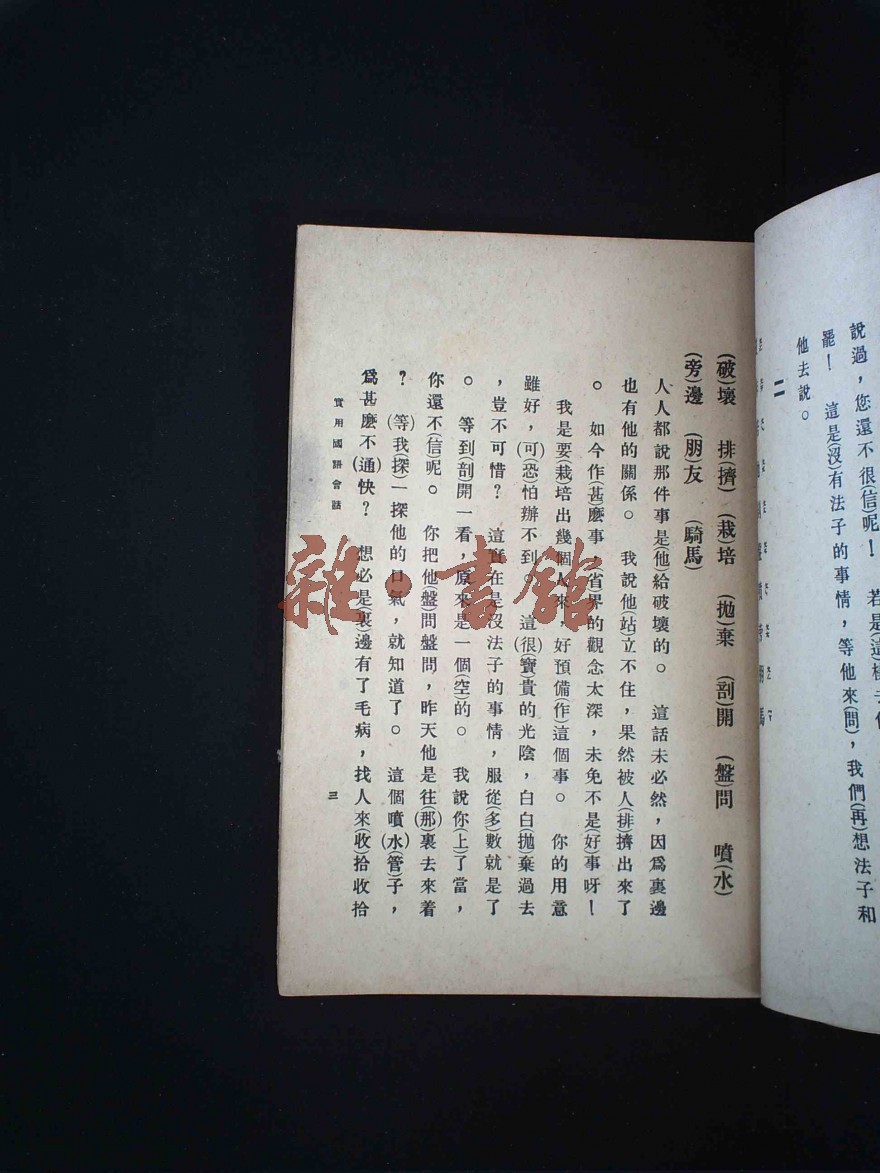 說過，您還不很(信)呢！　若是(這)樣去
罷！　這是(沒)有法子的事情，等他來(問)，我們(再)想法子和
他去說。
二
(破)壞　排(擠)　(栽)培　(拋)棄　(剖)開　(盤)問　噴(水)
(旁)邊　(朋)友　(騎馬)
人人都說那件事是(他)給破壞的。　這話未必然，因爲裏邊
也有他的關係。　我說他(站)立不住，果然被人(排)擠出來了
。　如今作(甚)麽事，省界的觀念太深，未免不是(好)事呀！
我是要(栽)培出幾個人來，好預備(作)這個事。　你的用意
雖好，(可)(恐)怕辦不到。　這(很)(寶)貴的光陰，白白(拋)棄過去
，豈不可惜？　這實在是沒法子的事情，服從(多)數就是了
。　等到(剖)開一看，原來是一個(空)的。　我說你(上)了當，
你還不(信)呢。　你把他(盤)問盤問，昨天他是往(那)裏去來着
？　(等)我(探)一探他的口氣，就知道了。　這個噴(水)(管)子，
爲甚麽不(通)快？　想必是(裏)邊有了毛病，找人來(收)拾收拾
實用國語會話
三
雜·書館